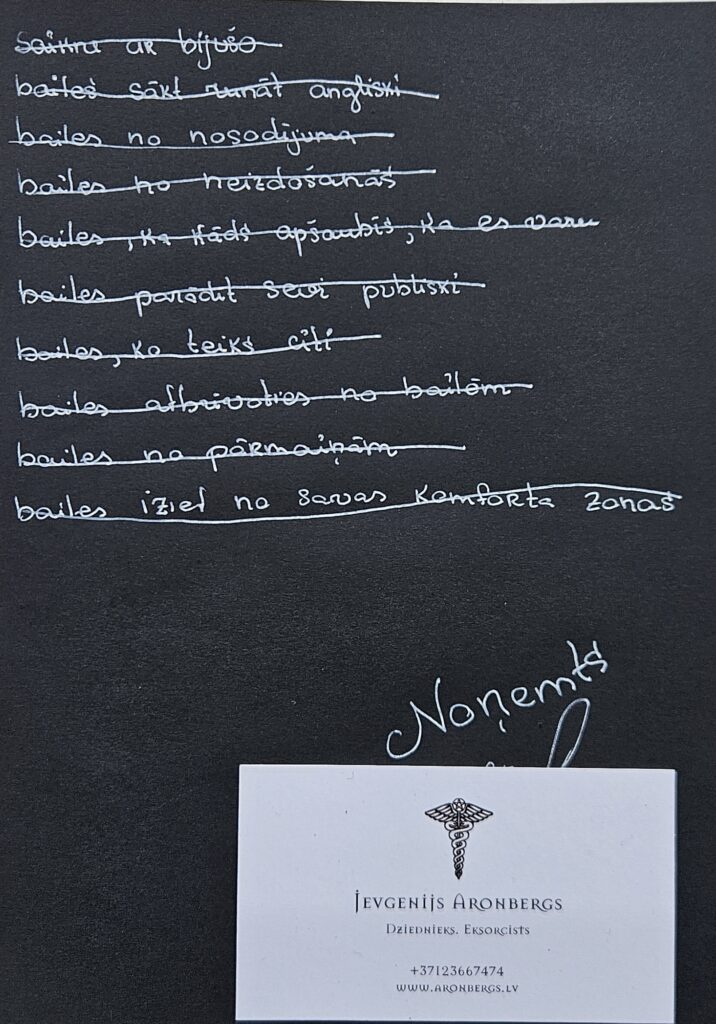 saikne ar bijušo
bailes sākt runāt angliski
bailes no nosodījuma
bailes no neizdošanās
bailes, ka kāds apšaubīs, ka es varu
bailes parādīt sevi publiski
bailes, ko teiks citi
bailes atbrīvoties no bailēm
bailes no pārmaiņām
bailes iziet no savas komforta zonas
Noņemts
JEVGENIJS ARONBERGS
DZIEDNIEKS. EKSORCISTS
+37123667474
WWW.ARONBERGS.LV